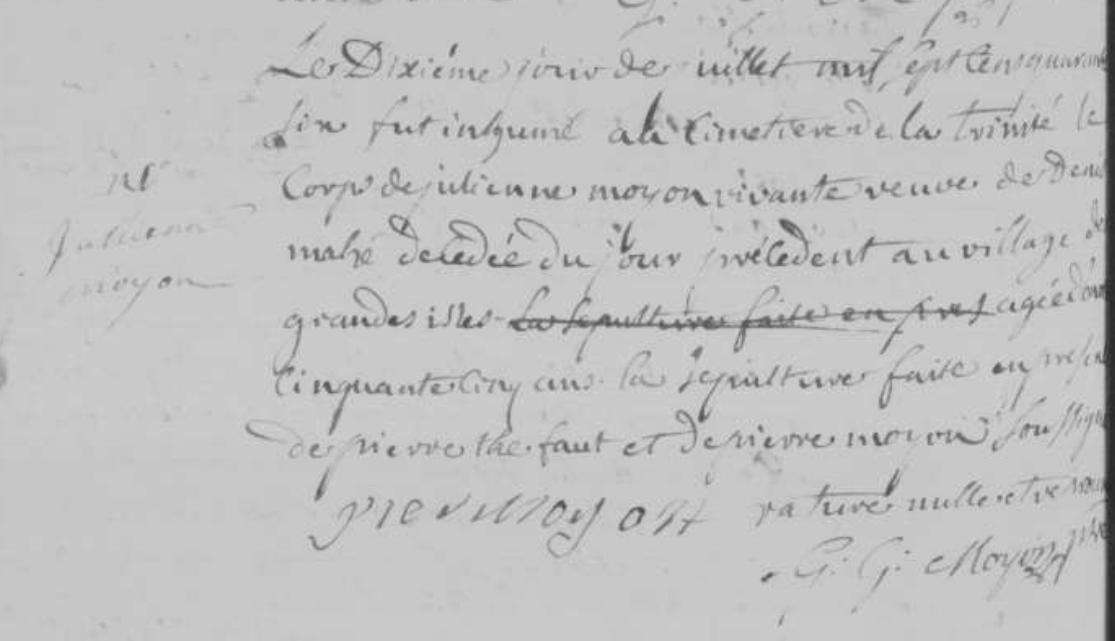 Le Dixiéme jour de juillet mil sept cens quarante
cin fut inhumé a la Cimetiere de la trinité le
Corps de julienne moyon vivante veuve de Deni
mahé decedée du jour précédent au village de
grandes isles la sepulture faite en pres agée d'env
Cinquante cinq ans la sepulture faite en presen
de pierre the faut et de pierre moyon soussigné
Julienne
moyon
moyon rature nulle
G. G. Moyon ptre